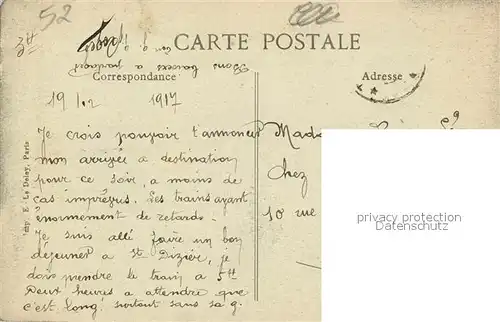 52
3tt
CARTE POSTALE
Bons baisers a partager
Correspondance
Adresse
19 1.2 1917
Je crois pouvoir t'annoncer
mon arrivée a destination
pour ce soir, a moins de
cas imprévus. Les trains ayant
énormement de retards.
Je suis allé faire un bon
déjeuner a St Dizier, je
dois prendre le train a 5tt
Deux heures a attendre que
c'est long! surtout sans sa g.
Chez
10 rue
Imp. E. Le Deley, Paris
privacy protection
Datenschutz